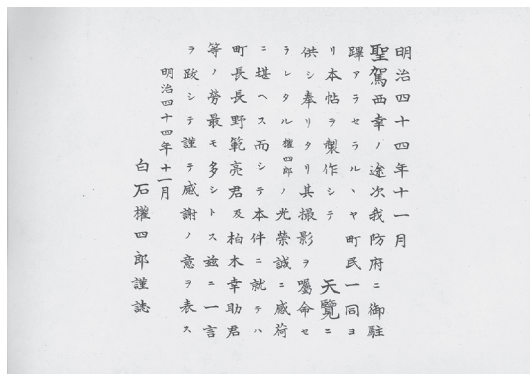 明治四十四年十一月
聖駕西幸ノ途次我防府ニ御駐
蹕アラセラルヽヤ町民一同ヨ
リ本帖ヲ製作シテ 天覽ニ
供シ奉リタリ其撮影ヲ囑命セ
ラレタル權四郎ノ光榮誠ニ感荷
ニ堪ヘス而シテ本件ニ就テハ
町長長野範亮君及柏木幸助君
等ノ勞最モ多シトス茲ニ一言
ヲ跋シテ謹テ感謝ノ意ヲ表ス
明治四十四年十一月
白石權四郎謹誌